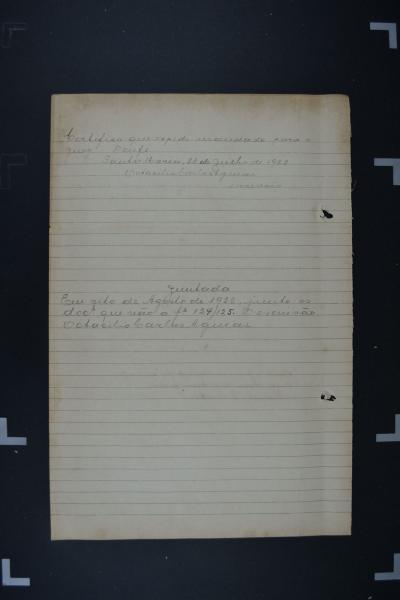 Certifico que expedi mandado para o
Santa Maria, 28 de Julho de 1922
Octacilio Carlos Aguiar
escrivão
Juntada
Em oito de Agosto de 1922, junto os
docs que vão a fs 124/125. O escrivão
Octacilio Carlos Aguiar